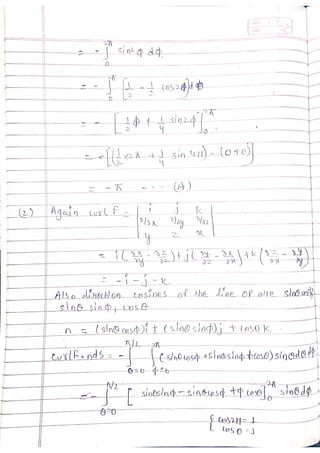 = - ∫₀^2π sin²φ dφ.
= - ∫₀^π [1/2 - 1/2 cos2φ] dφ
= - [1/2 φ + 1/4 sin2φ]₀^2π
= - [(1/2 × 2π + 1/4 sin 4π) - (0+0)]
= - π - - - (A)
(2) Again curl F = | i j k |
| ∂/∂x ∂/∂y ∂/∂z |
| y z x |
= i(∂x/∂y - ∂z/∂z) + j(∂y/∂z - ∂x/∂x) + k(∂z/∂x - ∂y/∂y)
= -i - j - k.
Also direction cosines of the line OP are sinθ cosφ,
sinθ sinφ, cosθ
n = (sinθ cosφ)i + (sinθ sinφ)j + cosθ k.
curl F. n ds = - ∫θ=0^π/2 ∫φ=0 (sinθ cosφ + sinθ sinφ + cosθ) sinθ dθ dφ.
= - ∫θ=0^π/2 [sinθ sinφ - sinθ cosφ + φ cosθ]₀^2π sinθ dθ.
{ cos2π = 1
cos0 = 1